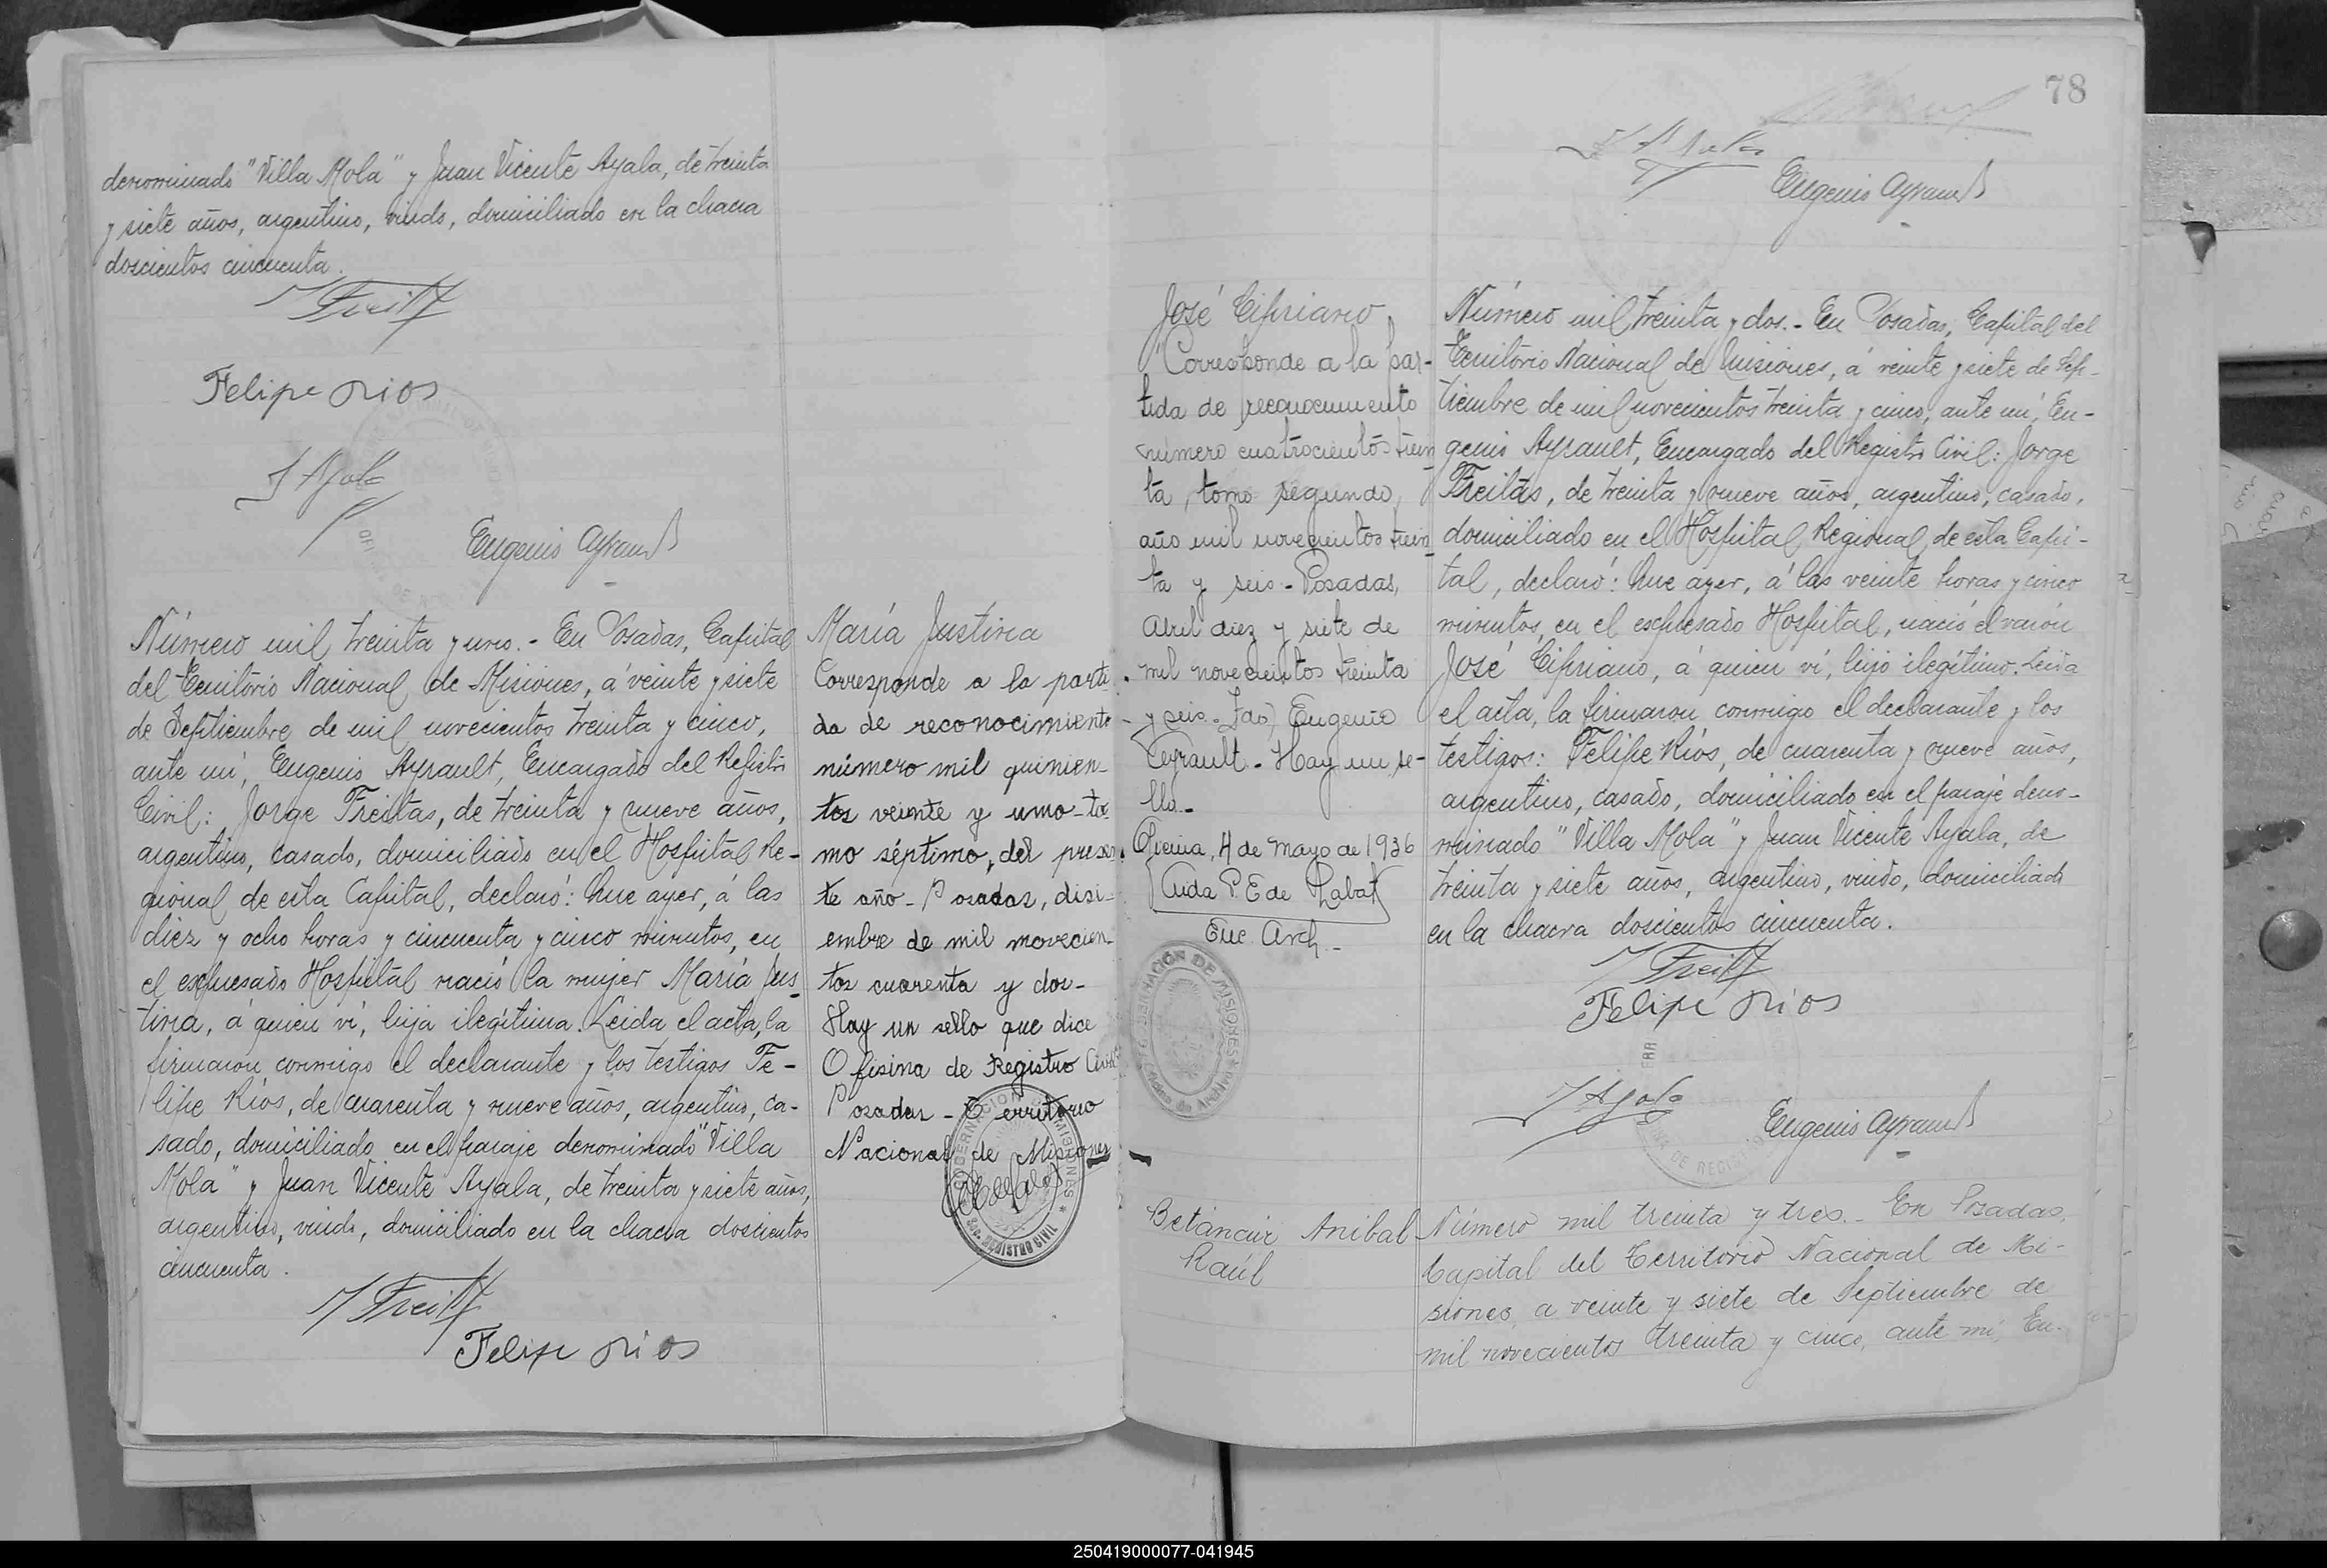 denominado "Villa Mola" y Juan Vicente Ayala, de treinta
y siete años, argentino, viudo, domiciliado en la chacra
doscientos cincuenta.
J Freitas
Felipe Rios
J Ayala
Eugenio Ayrault
Número mil treinta y uno.- En Posadas, Capital
del Territorio Nacional de Misiones, á veinte y siete
de Septiembre de mil novecientos treinta y cinco,
ante mí, Eugenio Ayrault, Encargado del Registro
Civil: Jorge Freitas, de treinta y nueve años,
argentino, casado, domiciliado en el Hospital Re-
gional de esta Capital, declaró: Que ayer, á las
diez y ocho horas y cincuenta y cinco minutos, en
el expresado Hospital nació la mujer María Jus-
tina, á quien ví, hija ilegítima. Leida el acta, la
firmaron conmigo el declarante y los testigos Fe-
lipe Ríos, de cuarenta y nueve años, argentino, ca-
sado, domiciliado en el paraje denominado "Villa
Mola" y Juan Vicente Ayala, de treinta y siete años,
argentino, viudo, domiciliado en la chacra doscientos
cincuenta.
J Freitas
Felipe Rios
María Justina
Corresponde a la parti-
da de reconocimiento
número mil quinien-
tos veinte y uno - to-
mo séptimo, del presen-
te año - Posadas, disi-
embre de mil novecien-
tos cuarenta y dos -
Hay un sello que dice
Ofisina de Registro Civil
Posadas - Territorio
Nacional de Misiones
GOBERNACION DE MISIONES
REGISTRO CIVIL
78
J Ayala
Eugenio Ayrault
José Cipriano
"Corresponde a la par-
tida de reconocimiento
número cuatrocientos trein
ta, tomo segundo,
año mil novecientos trein
ta y seis - Posadas,
Abril diez y siete de
mil novecientos treinta
y seis - Fdo) Eugenio
Ayrault - Hay un se-
llo -
4 de mayo de 1936
Aida P. E de Labat
Enc. Arch. -
GOBERNACIÓN DE MISIONES
Oficina de Archivo
Número mil treinta y dos.- En Posadas, Capital del
Territorio Nacional de Misiones, á veinte y siete de Sep-
tiembre de mil novecientos treinta y cinco, ante mí, Eu-
genio Ayrault, Encargado del Registro Civil: Jorge
Freitas, de treinta y nueve años, argentino, casado,
domiciliado en el Hospital Regional de esta Capi-
tal, declaró: Que ayer, á las veinte horas y cinco
minutos, en el expresado Hospital, nació el varón
José Cipriano, á quien ví, hijo ilegítimo. Leida
el acta, la firmaron conmigo el declarante y los
testigos: Felipe Ríos, de cuarenta y nueve años,
argentino, casado, domiciliado en el paraje deno-
minado "Villa Mola" y Juan Vicente Ayala, de
treinta y siete años, argentino, viudo, domiciliado
en la chacra doscientos cincuenta.
J Freitas
Felipe Rios
J Ayala
Eugenio Ayrault
Betancur Anibal
Raúl
Número mil treinta y tres.- En Posadas,
Capital del Territorio Nacional de Mi-
siones, a veinte y siete de Septiembre de
mil novecientos treinta y cinco, ante mí, Eu-
250419000077-041945